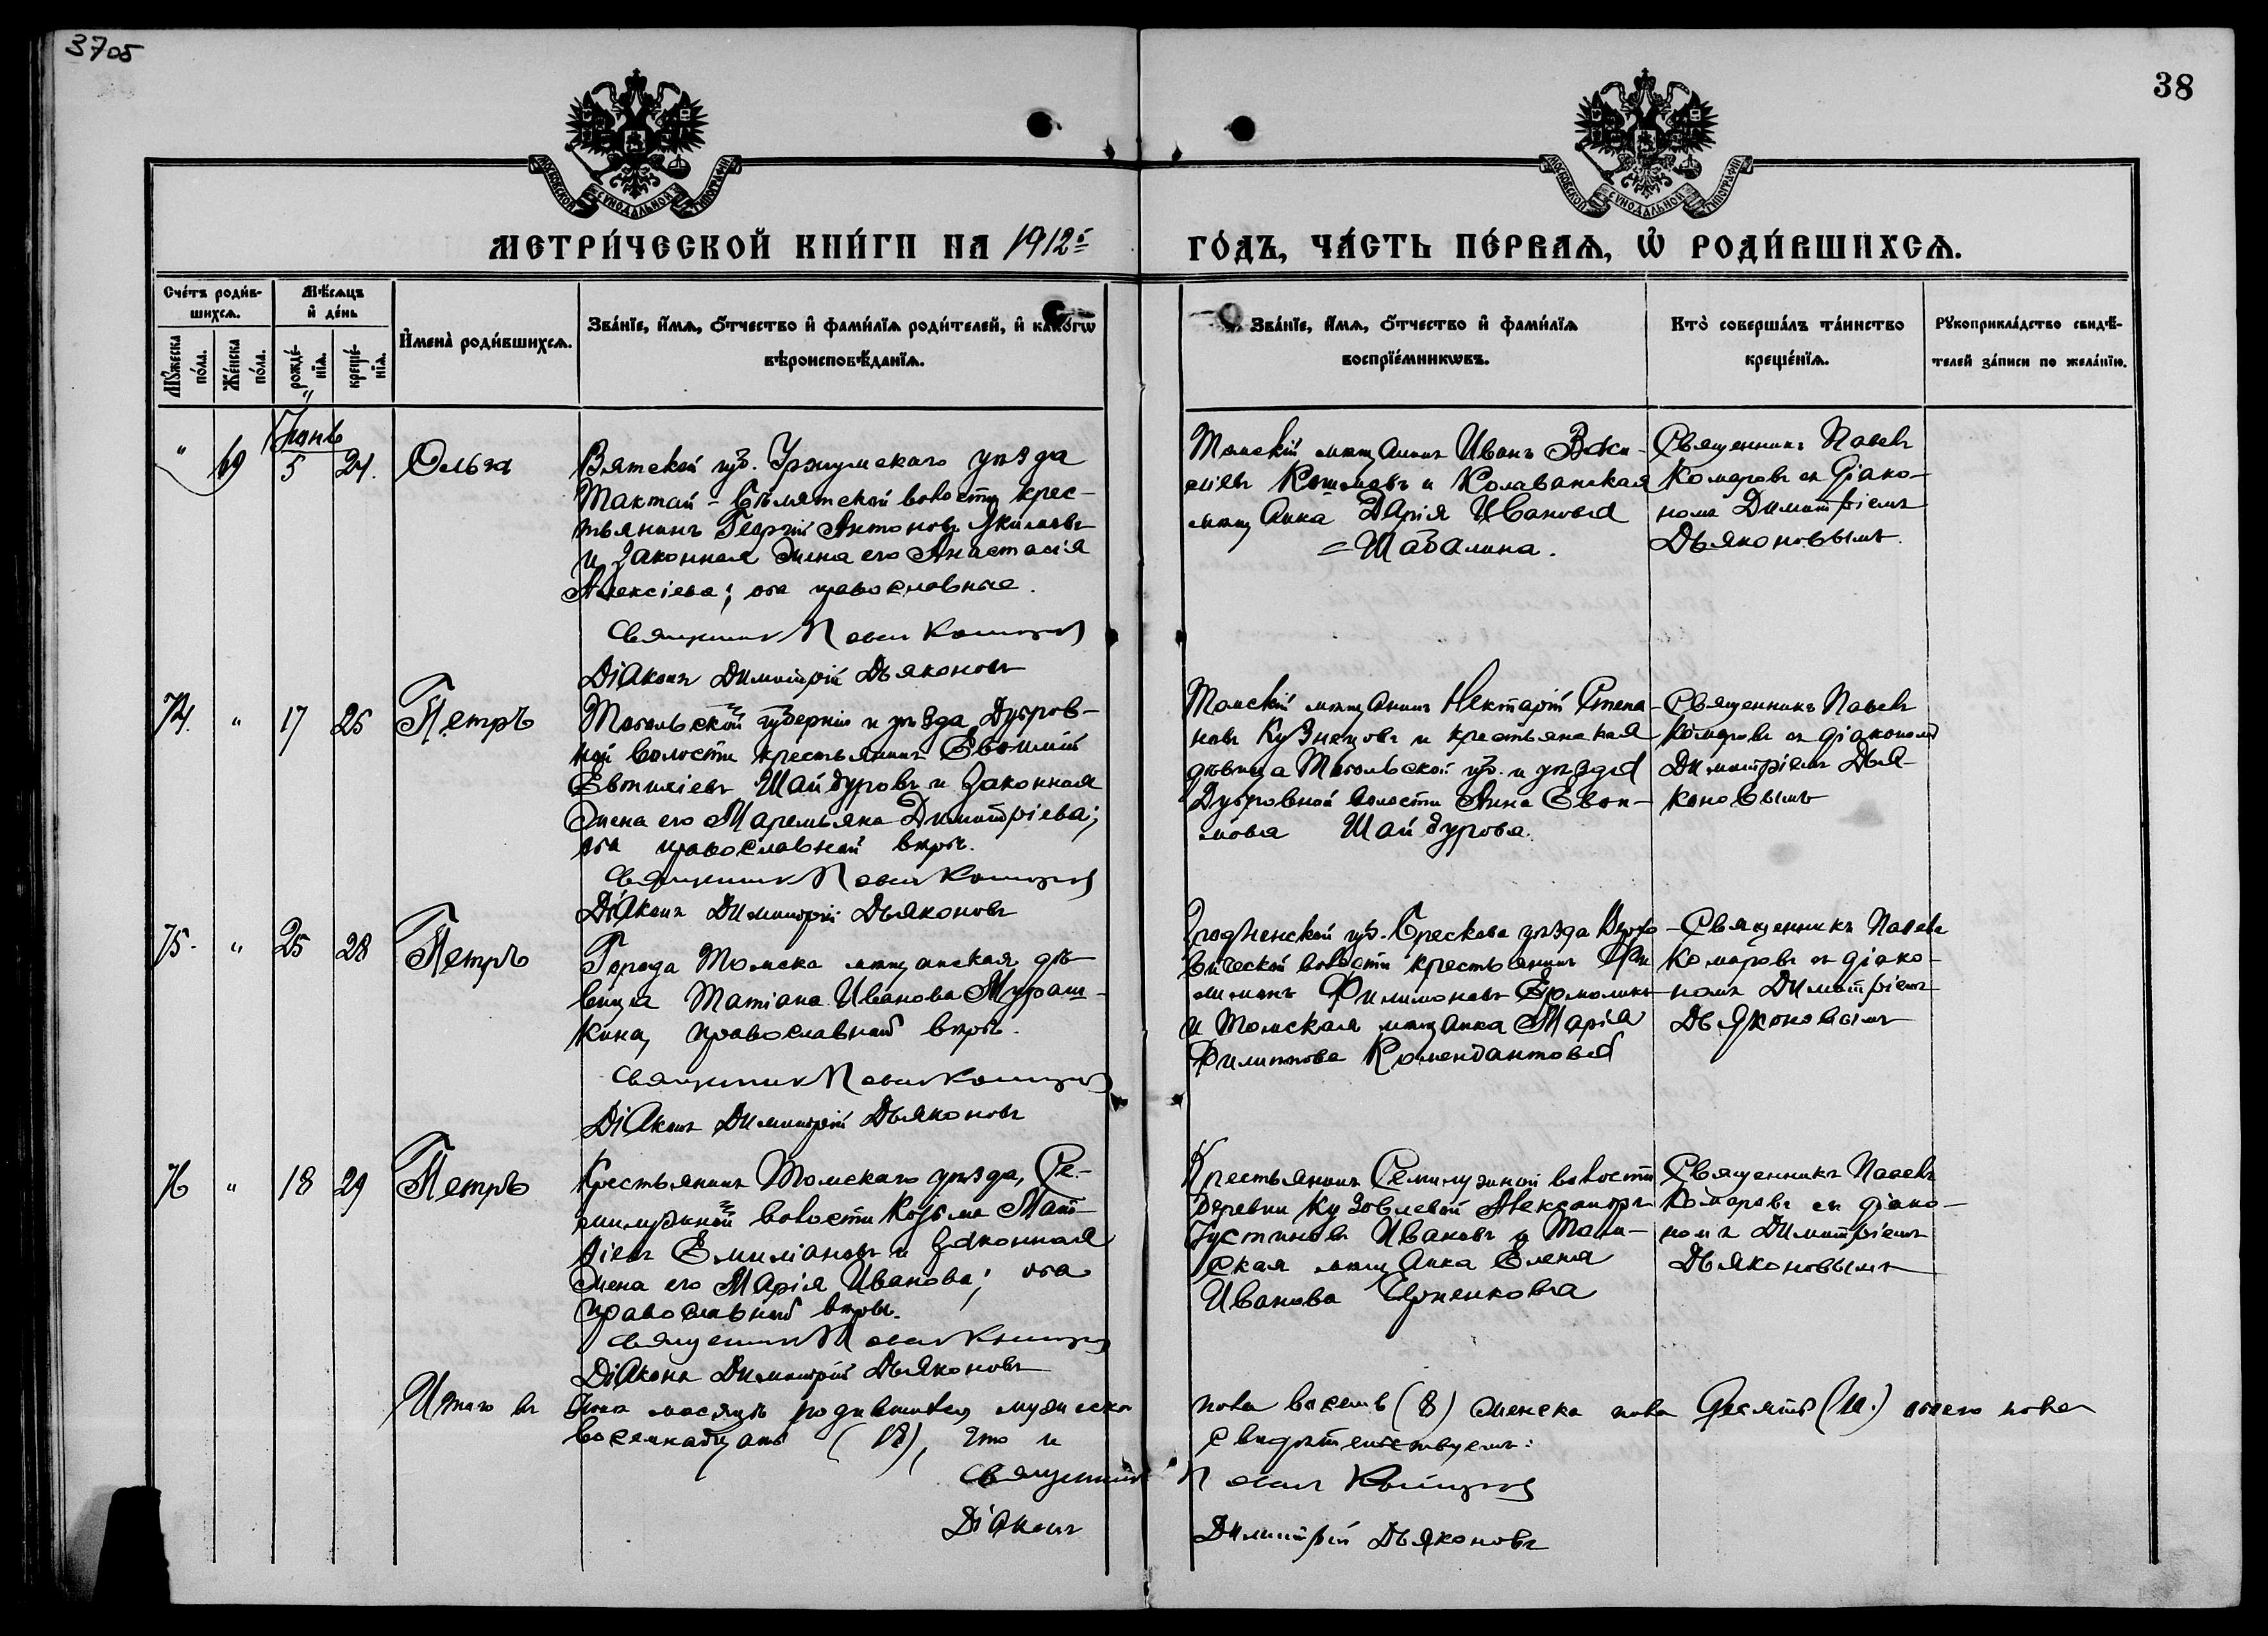 3705
38
МОСКОВСКОЙ СѴНОДАЛЬНОЙ ТИПОГРАФІИ
МОСКОВСКОЙ СѴНОДАЛЬНОЙ ТИПОГРАФІИ
МЕТРИ́ЧЕСКОЙ КНИ́ГИ НА 1912й
ГО́ДЪ, ЧА́СТЬ ПЕ́РВАѦ, Ѡ҆ РОДИ́ВШИХСѦ.
Сче́тъ роди́в-
шихсѧ.
Мꙋ́жеска
по́ла.
Же́нска
по́ла.
Мѣ́сѧцъ
и҆ де́нь
рожде́-
нїѧ.
креще́-
нїѧ.
И҆мена̀ роди́вшихсѧ.
Зва́нїе, и҆́мѧ, ѻ҆́тчество и҆ фами́лїѧ роди́телей, и҆ како́гѡ
вѣроисповѣ́данїѧ.
Зва́нїе, и҆́мѧ, ѻ҆́тчество и҆ фами́лїѧ
воспрїе́мникѡвъ.
Кто̀ соверша́лъ та́инство
креще́нїѧ.
Рꙋкоприкла́дство свидѣ́-
телей за́писи по жела́нїю.
Іюнь
" 69 5 24. Ольга
Вятской губ. Уржумскаго уѣзда
Мактай-Бѣлятской волости крес-
тьянинъ Георгій Антоновъ Якимовъ
и законная жена его Анастасія
Алексіева; оба православные.
Священникъ Павелъ Комаровъ
Діаконъ Димитрій Дьяконовъ
Томскій мѣщанинъ Иванъ
и Колыванская
мѣщанка Дарія Иванова
Шабалина.
Священникъ Павелъ
Комаровъ съ діако-
номъ Димитріемъ
Дьяконовымъ.
74. " 17 25 Петръ
Тобольской губерніи и уѣзда Дубров-
ной волости крестьянинъ Евфимій
Евфиміевъ Шайдуровъ и законная
жена его Маремьяна Димитріева;
оба православной вѣры.
Священникъ Павелъ Комаровъ
Діаконъ Димитрій Дьяконовъ
Томскій мѣщанинъ Нектарій Степа-
новъ Кузнецовъ и крестьянская
дѣвица Тобольской губ. и уѣзда
Дубровной волости Анна Евфи-
мова Шайдурова.
Священникъ Павелъ
Комаровъ съ діакономъ
Димитріемъ Дья-
коновымъ
75. " 25 28 Петръ
Города Томска мѣщанская дѣ-
вица Татіана Иванова Мураш-
кина, православной вѣры.
Священникъ Павелъ Комаровъ
Діаконъ Димитрій Дьяконовъ
Гродненской губ. Брескаго уѣзда Верхо-
вичской волости крестьянинъ Фи-
лимонъ Филимоновъ Ермолинъ
и Томская мѣщанка Марія
Филиппова Комендантова
Священникъ Павелъ
Комаровъ съ діако-
номъ Димитріемъ
Дьяконовымъ
76 " 18 29 Петръ
Крестьянинъ Томскаго уѣзда, Се-
милужной волости Козьма Мат-
ѳіевъ Емиліановъ и законная
жена его Марія Иванова; оба
православной вѣры.
Священникъ Павелъ Комаровъ
Діаконъ Димитрій Дьяконовъ
Крестьянинъ Семилужной волости
деревни Кузовлевой Александръ
Іустиновъ Ивановъ и Том-
ская мѣщанка Елена
Иванова
Священникъ Павелъ
Комаровъ съ діако-
номъ Димитріемъ
Дьяконовымъ
Итого въ Іюнѣ мѣсяцѣ родившихся мужеска пола восемь (8) женска пола десять (10.) обоего пола
восемнадцать (18), что и свидѣтельствуемъ:
Священникъ Павелъ Комаровъ
Діаконъ Димитрій Дьяконовъ